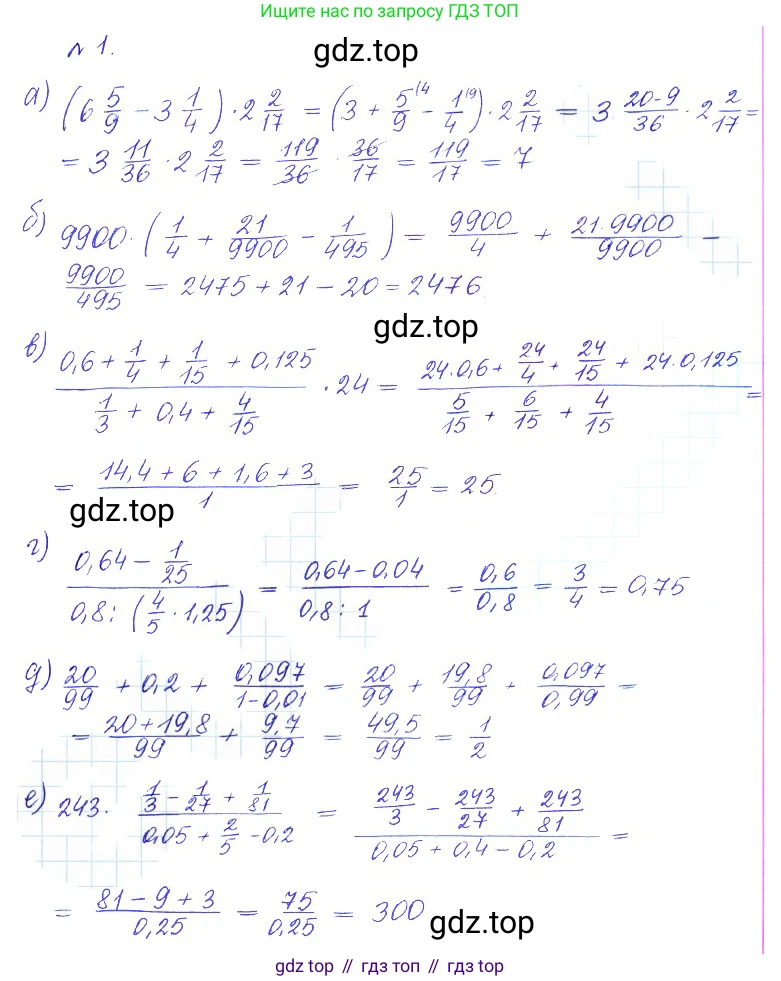 Ищите нас по запросу ГДЗ ТОП
№ 1.
gdz.top
а) (6 5/9 - 3 1/4) · 2 2/17 = (3 + 5/9 (4 - 1/4 (9) · 2 2/17 = 3 20-9/36 · 2 2/17 =
= 3 11/36 · 2 2/17 = 119/36 · 36/17 = 119/17 = 7
б) 9900 · (1/4 + 21/9900 - 1/495) = 9900/4 + 21·9900/9900 -
9900/495 = 2475 + 21 - 20 = 2476
gdz.top
в) (0,6 + 1/4 + 1/15 + 0,125)/(1/3 + 0,4 + 4/15) · 24 = (24·0,6 + 24/4 + 24/15 + 24·0,125)/(5/15 + 6/15 + 4/15) =
= (14,4 + 6 + 1,6 + 3)/1 = 25/1 = 25
gdz.top
г) (0,64 - 1/25)/(0,8 : (4/5 · 1,25)) = (0,64 - 0,04)/(0,8 : 1) = 0,6/0,8 = 3/4 = 0,75
д) 20/99 + 0,2 + 0,097/(1-0,01) = 20/99 + 19,8/99 + 0,097/0,99 =
= (20 + 19,8)/99 + 9,7/99 = 49,5/99 = 1/2
е) 243 · (1/3 - 1/27 + 1/81)/(0,05 + 2/5 - 0,2) = (243/3 - 243/27 + 243/81)/(0,05 + 0,4 - 0,2) =
= (81 - 9 + 3)/0,25 = 75/0,25 = 300
gdz.top
gdz top // гдз топ // гдз top